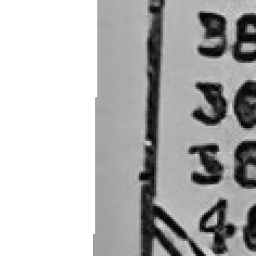 38
36
38
48